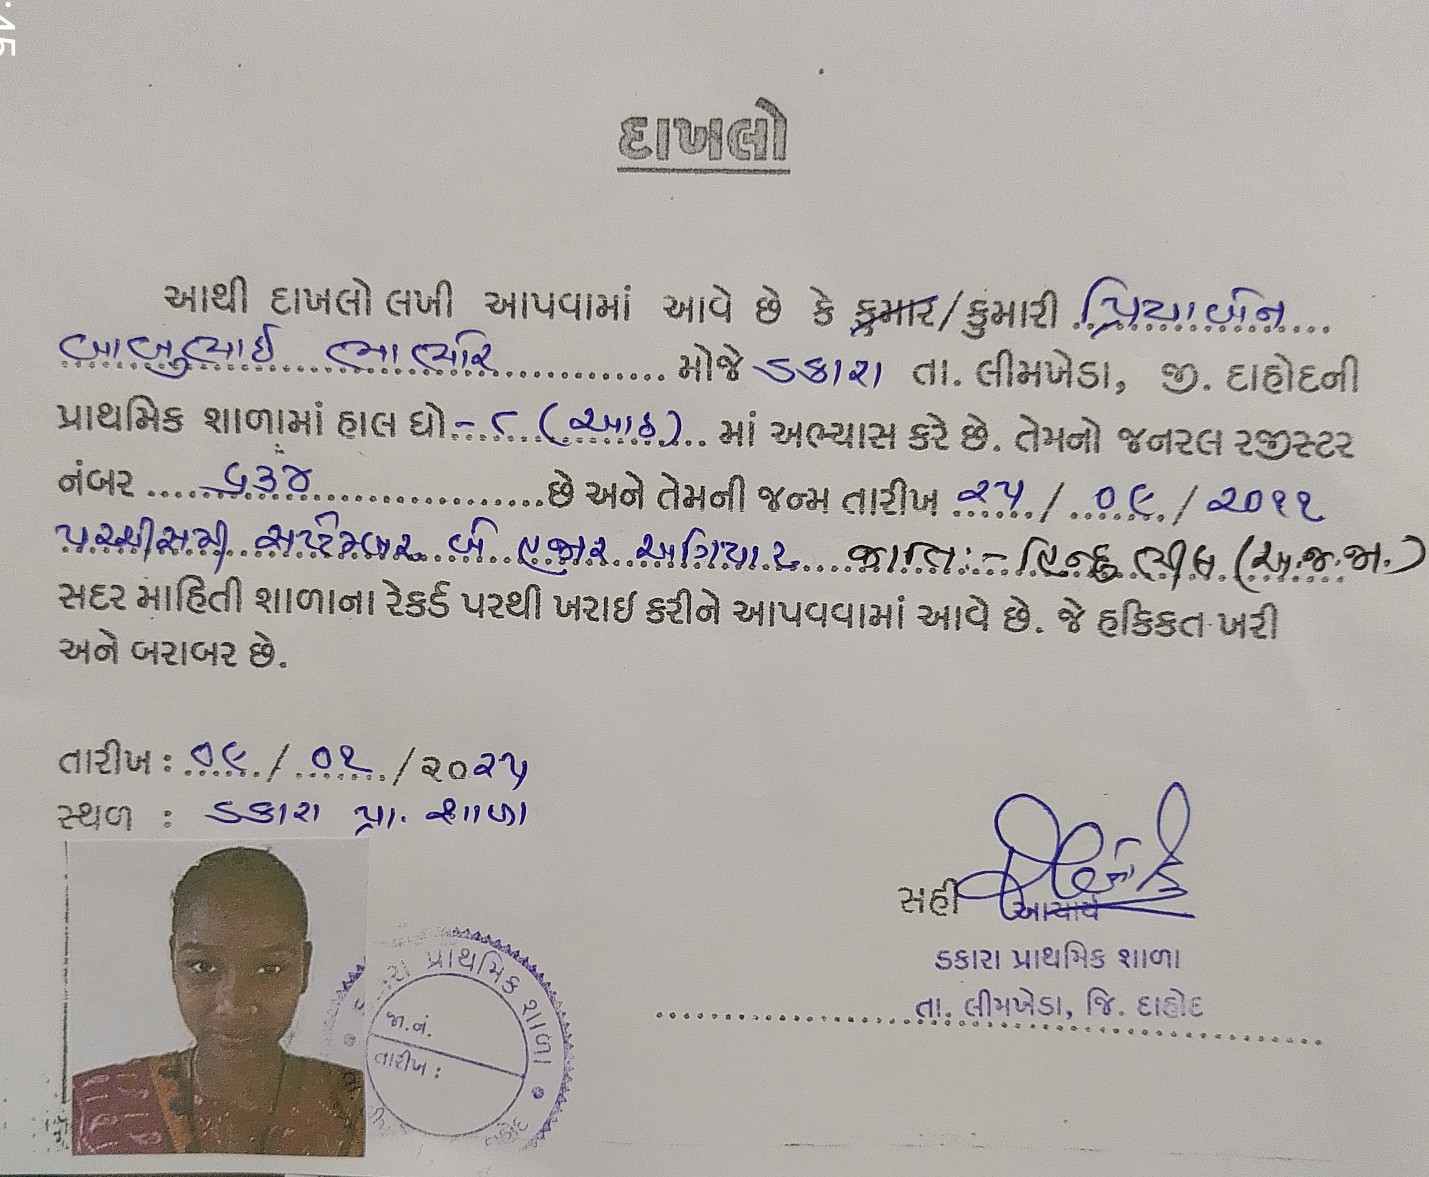 :45
દાખલો
આથી દાખલો લખી આપવામાં આવે છે કે કુમાર/કુમારી પ્રિયાબેન
બાબુભાઈ ભાભોર મોજે ડકારા તા. લીમખેડા, જી. દાહોદની
પ્રાથમિક શાળામાં હાલ ધો.-૮ (આઠ) માં અભ્યાસ કરે છે. તેમનો જનરલ રજીસ્ટર
નંબર ૬૩૪ છે અને તેમની જન્મ તારીખ ૨૫/૦૯/૨૦૧૧
પચ્ચીસમી સપ્ટેમ્બર બે હજાર અગિયાર જાતિ:- હિન્દુ ભીલ (અ.જ.જા.)
સદર માહિતી શાળાના રેકર્ડ પરથી ખરાઇ કરીને આપવવામાં આવે છે. જે હકિકત ખરી
અને બરાબર છે.
તારીખ : ૦૯/૦૧/૨૦૨૫
સ્થળ : ડકારા પ્રા. શાળા
સહી
આચાર્ય
ડકારા પ્રાથમિક શાળા
તા. લીમખેડા, જિ. દાહોદ
પ્રાથમિક શાળા
જા.નં.
તારીખ :
દાહોદ